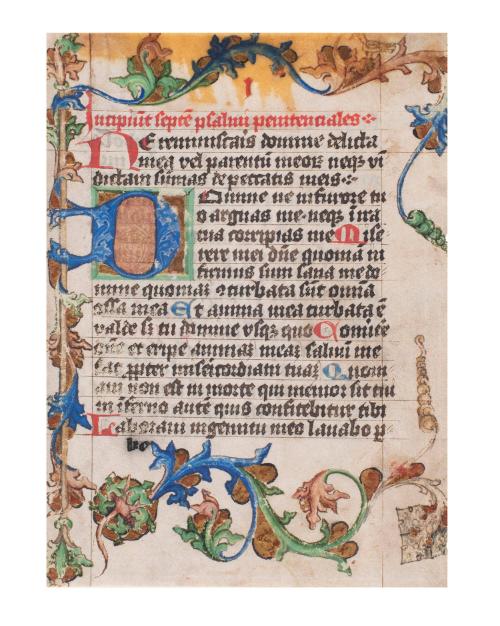 Incipiūt septē psalmi penitentiales
NE reminiscaris domine delicta
mea vel parentū meoꝝ neqꝫ vi
dictam sūmas de peccatis meis
Domine ne in furore tu
o arguas me neqꝫ in ira
tua corripias me Mise
rere mei dn̄e quoniā in
firmus sum sana me do
mine quoniaꝫ ꝯturbata sūt omīa
ossa mea Et anima mea turbata ē
valde sꝫ tu domine vsqꝫ quo Conuer
tere et eripe animaꝫ meaꝫ saluū me
fac ꝓpter misericordiam tuaꝫ Quoni
am non est in morte qui memor sit tui
in inferno autē quis confitebitur tibi
Laboraui in gemitu meo lauabo p